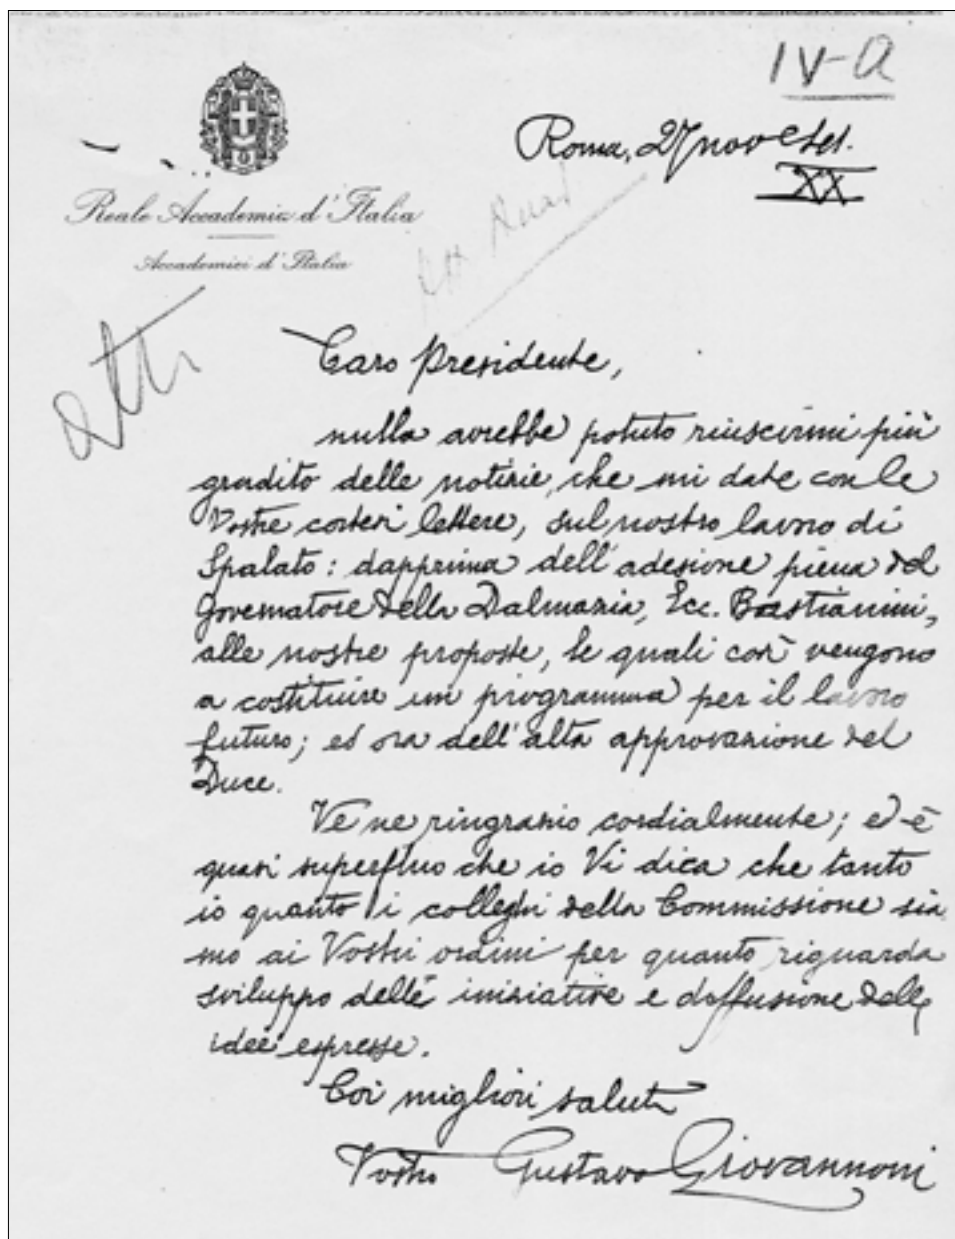 IV-A
Roma, 27 nov
XX
Reale Accademia d'Italia
Accademici d'Italia
Atti
Caro Presidente,
nulla avrebbe potuto riuscirmi più
gradito delle notizie, che mi date con le
Vostre cortesi lettere, sul nostro lavoro di
Spalato: dapprima dell'adesione piena del
Governatore della Dalmazia, Ecc. Bastianini,
alle nostre proposte, le quali così vengono
a costituire un programma per il lavoro
futuro; ed ora dell'alta approvazione del
Duce.
Ve ne ringrazio cordialmente; ed è
quasi superfluo che io Vi dica che tanto
io quanto i colleghi della Commissione sia
mo ai Vostri ordini per quanto riguarda
sviluppo delle iniziative e diffusione delle
idee espresse.
Coi migliori saluti
Vostro Gustavo Giovannoni